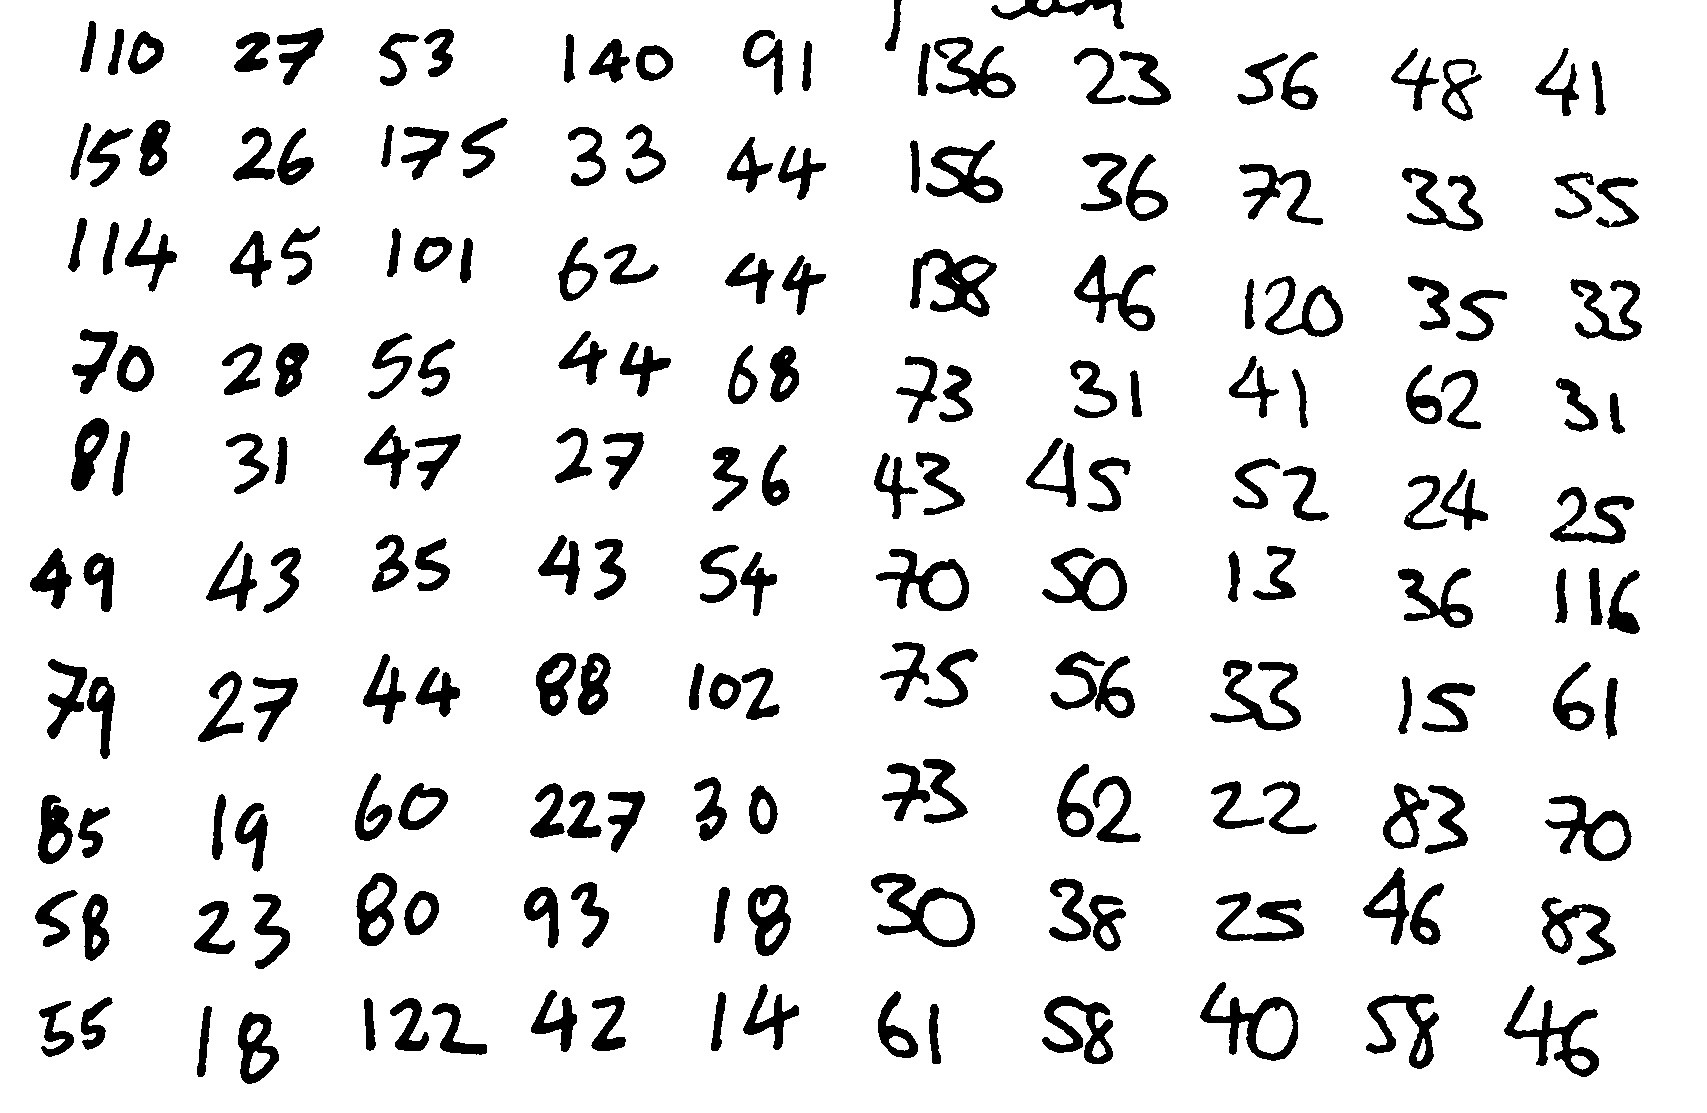 110 27 53 140 91 136 23 56 48 41
158 26 175 33 44 156 36 72 33 55
114 45 101 62 44 138 46 120 35 33
70 28 55 44 68 73 31 41 62 31
81 31 47 27 36 43 45 52 24 25
49 43 35 43 54 70 50 13 36 116
79 27 44 88 102 75 56 33 15 61
85 19 60 227 30 73 62 22 83 70
58 23 80 93 18 30 38 25 46 83
55 18 122 42 14 61 58 40 58 46